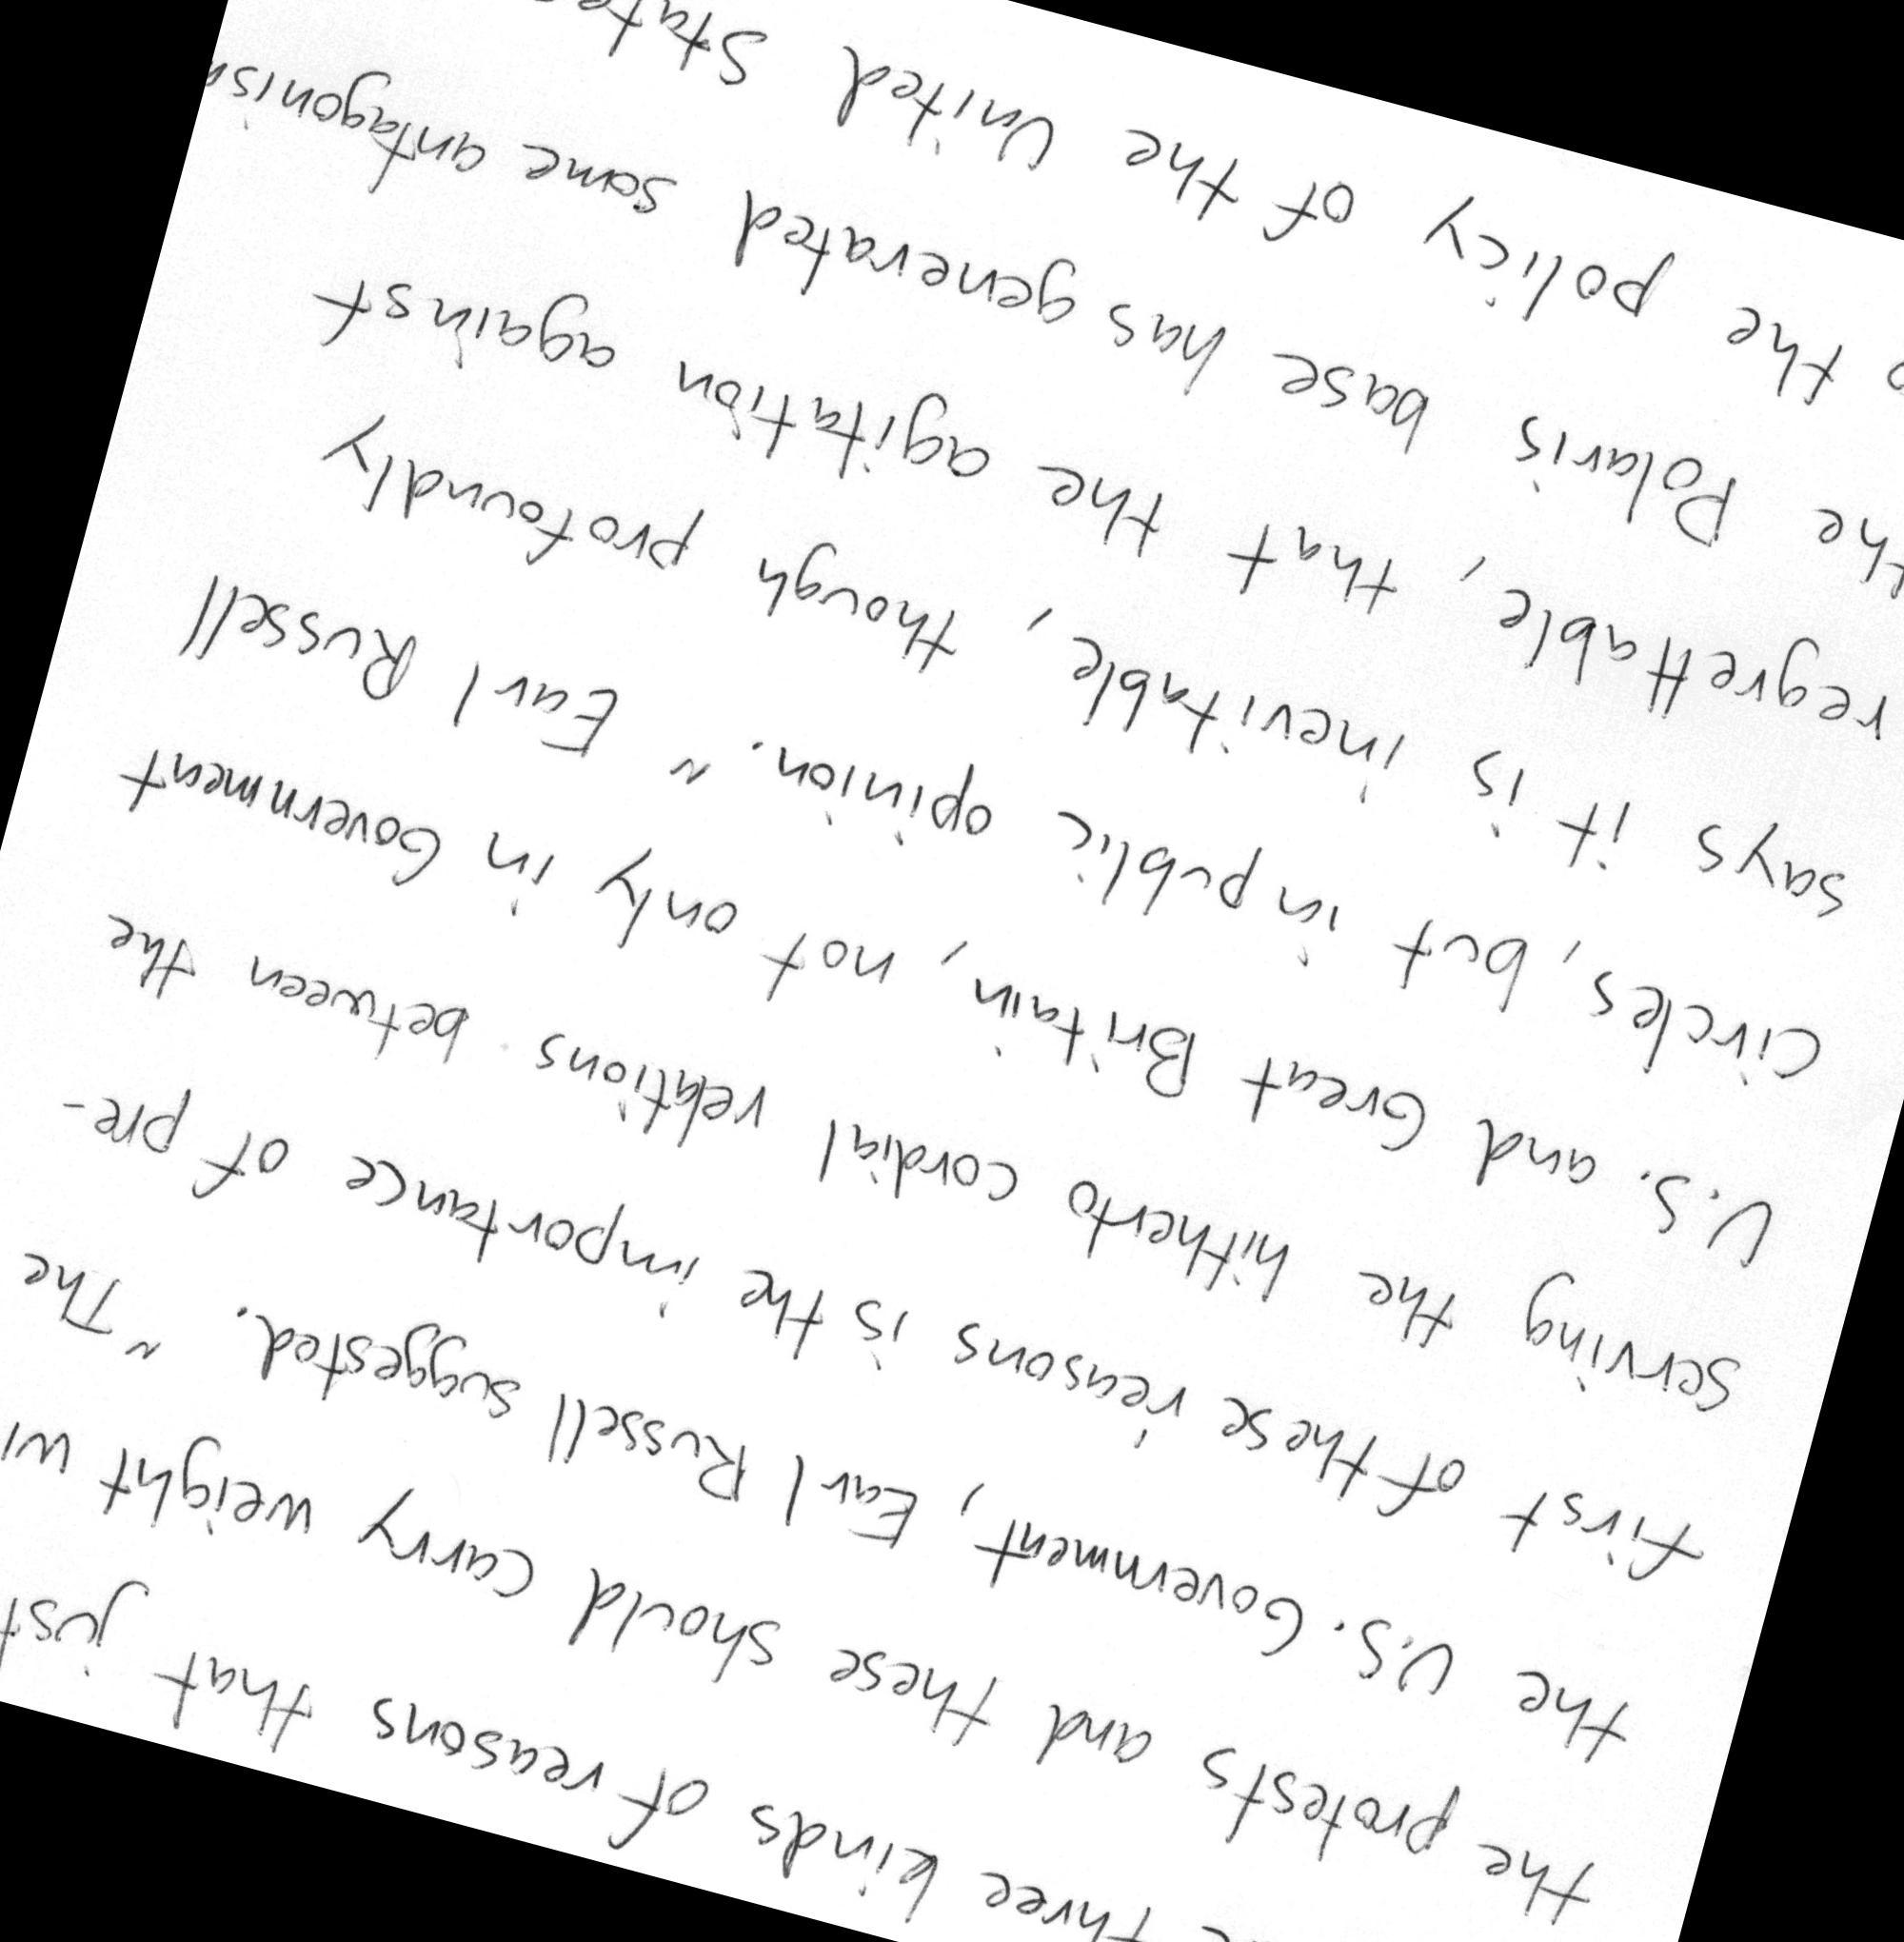 three kinds of reasons that just
the protests and these should carry weight
the U.S. Government, Earl Russell suggested. "The
first of these reasons is the importance of pre-
serving the hitherto cordial relations between the
U.S. and Great Britain, not only in Government
circles, but in public opinion." Earl Russell
says it is inevitable, though profoundly
regrettable, that the agitation against
the Polaris base has generated some antagonism
the policy of the United States